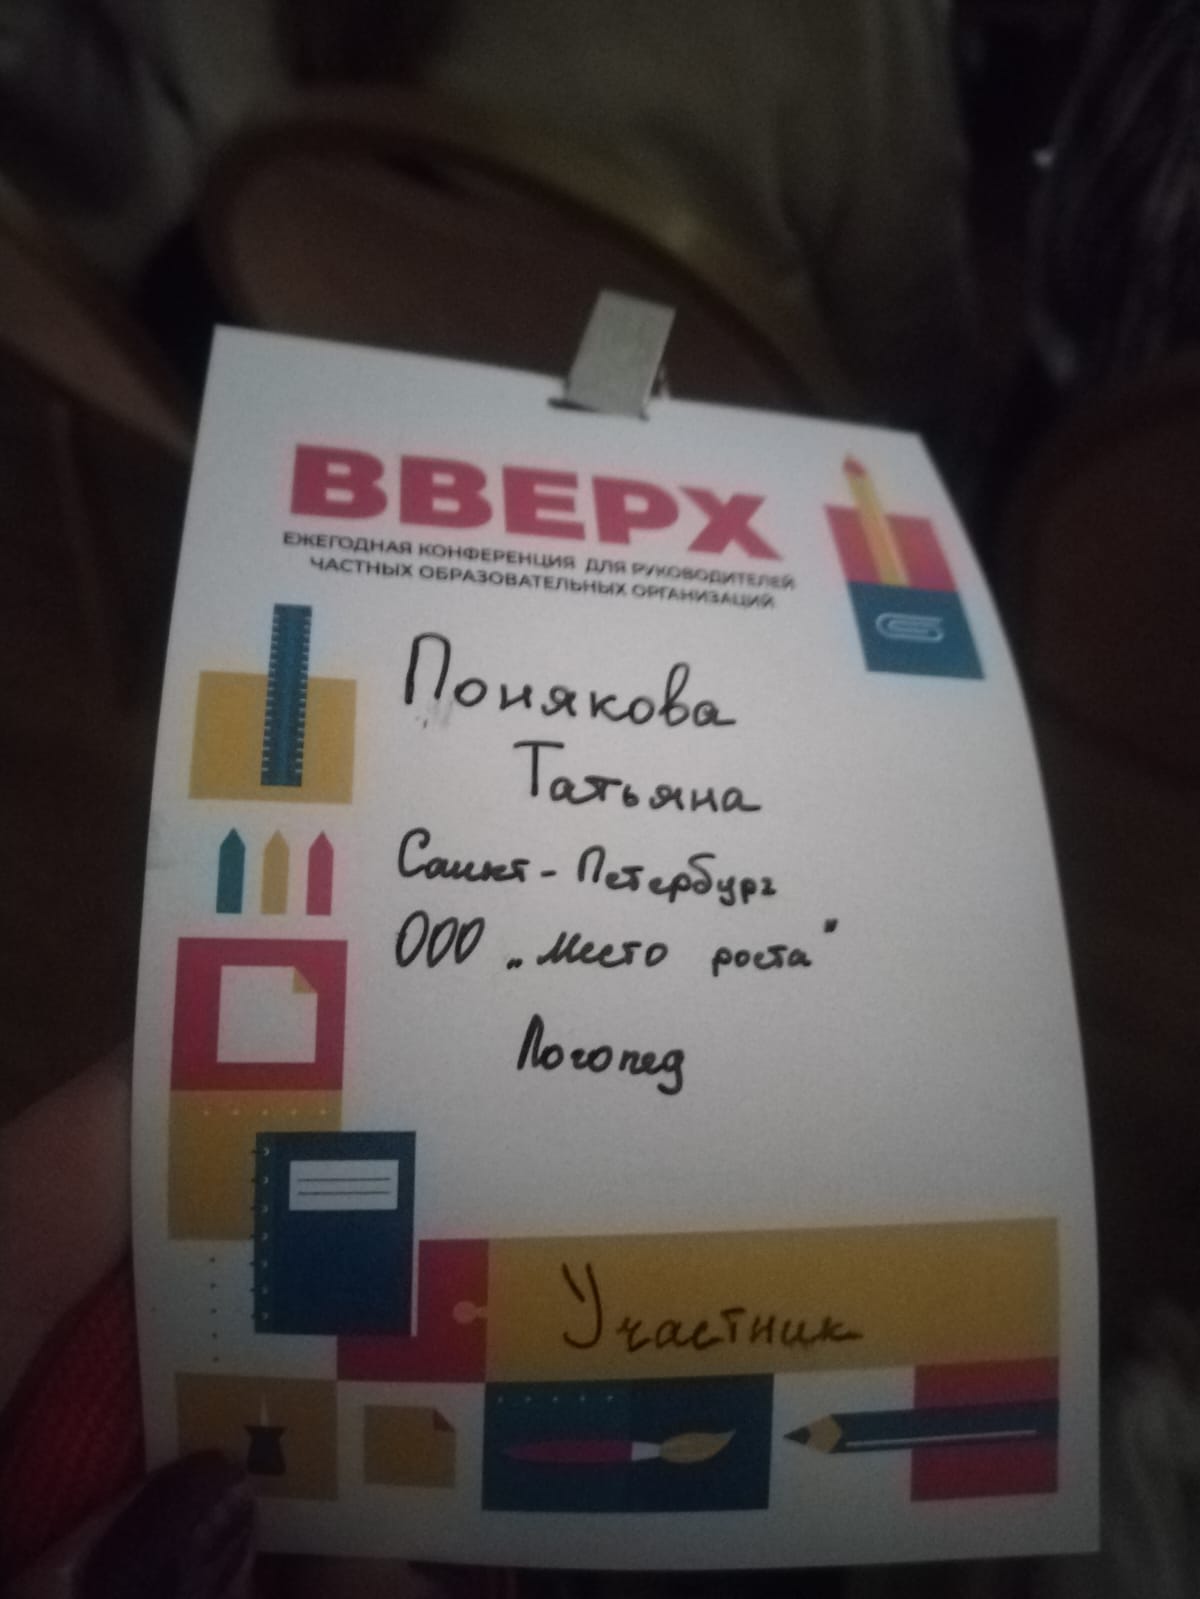 ВВЕРХ
ЕЖЕГОДНАЯ КОНФЕРЕНЦИЯ ДЛЯ РУКОВОДИТЕЛЕЙ
ЧАСТНЫХ ОБРАЗОВАТЕЛЬНЫХ ОРГАНИЗАЦИЙ
Понякова
Татьяна
Санкт-Петербург
ООО „Место роста"
Логопед
Участник